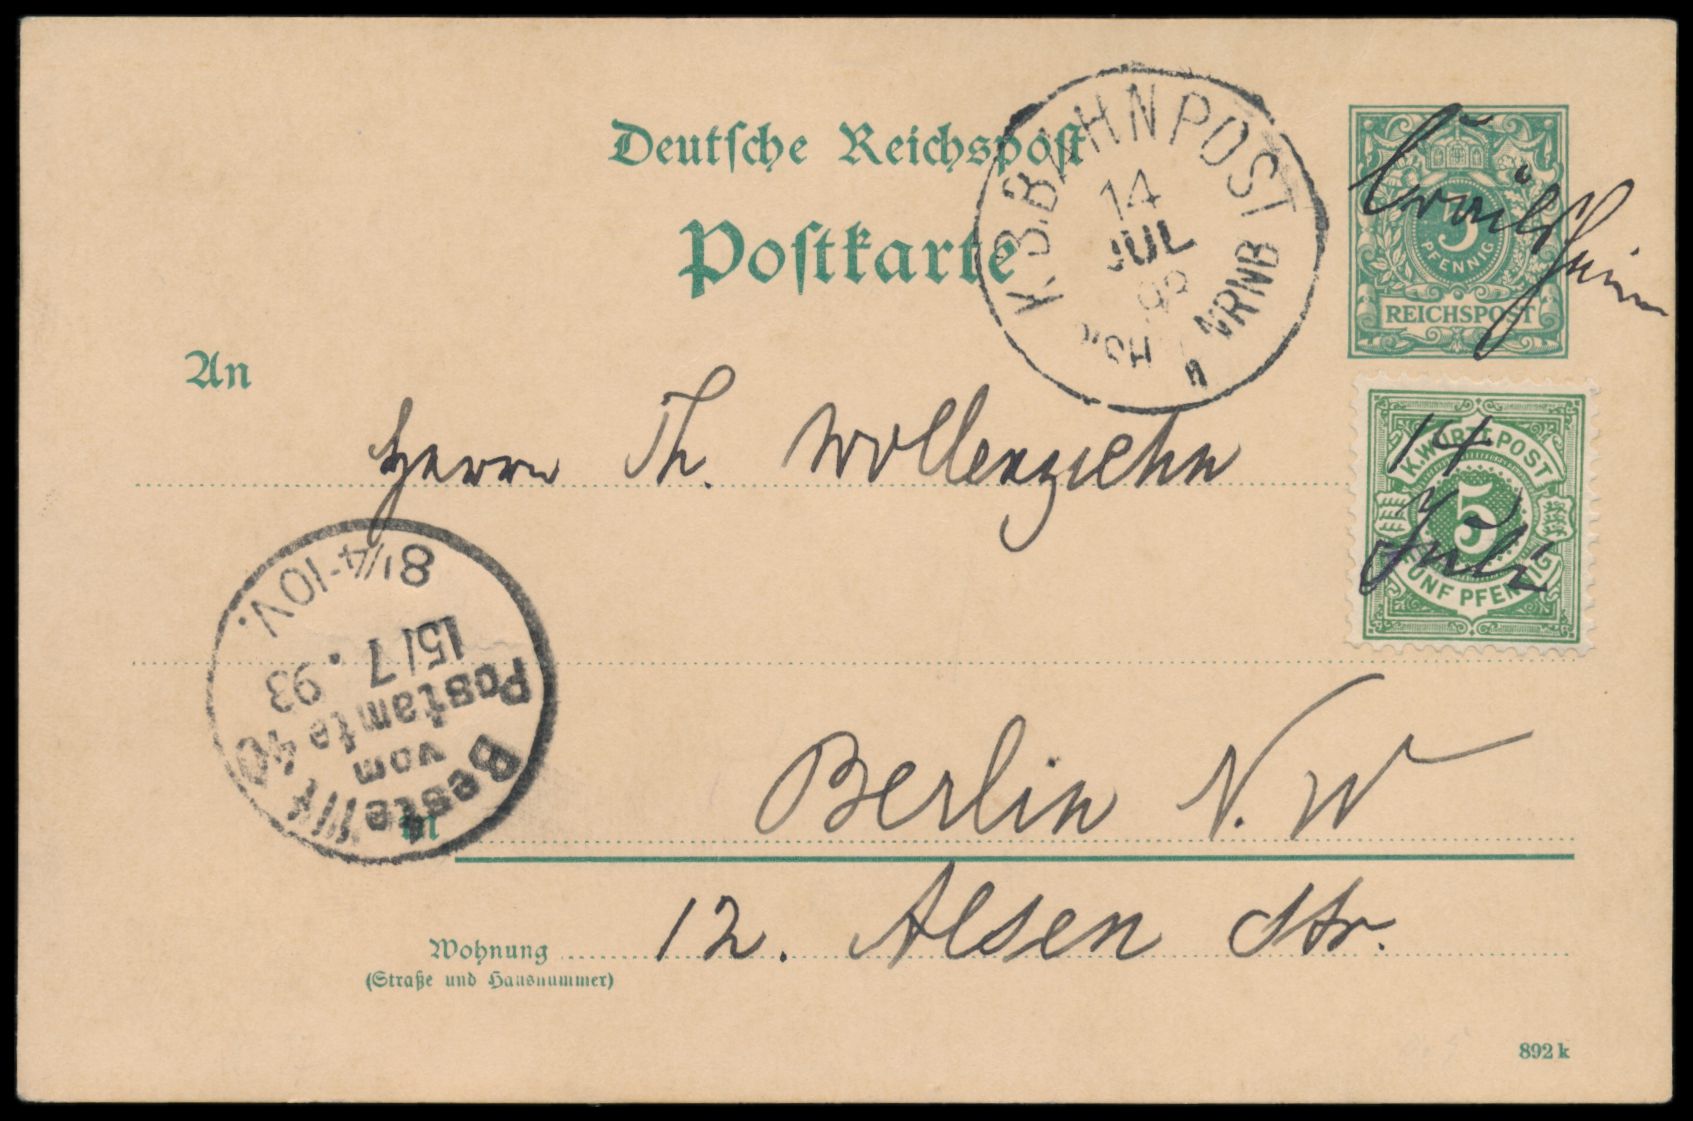 Deutsche Reichspost
Postkarte
K.B.BAHNPOST
14
JUL
NRNB
5
PFENNIG
REICHSPOST
Crailsheim
K.WÜRTT.POST
5
FÜNF PFENNIG
14
Juli
An
Herrn Th. Wollenziehn
Bestellt
vom
Postamte 40
15/7. 93
8¼-10V.
in
Berlin N.W
Wohnung
12. Alsen Str.
(Straße und Hausnummer)
892 k